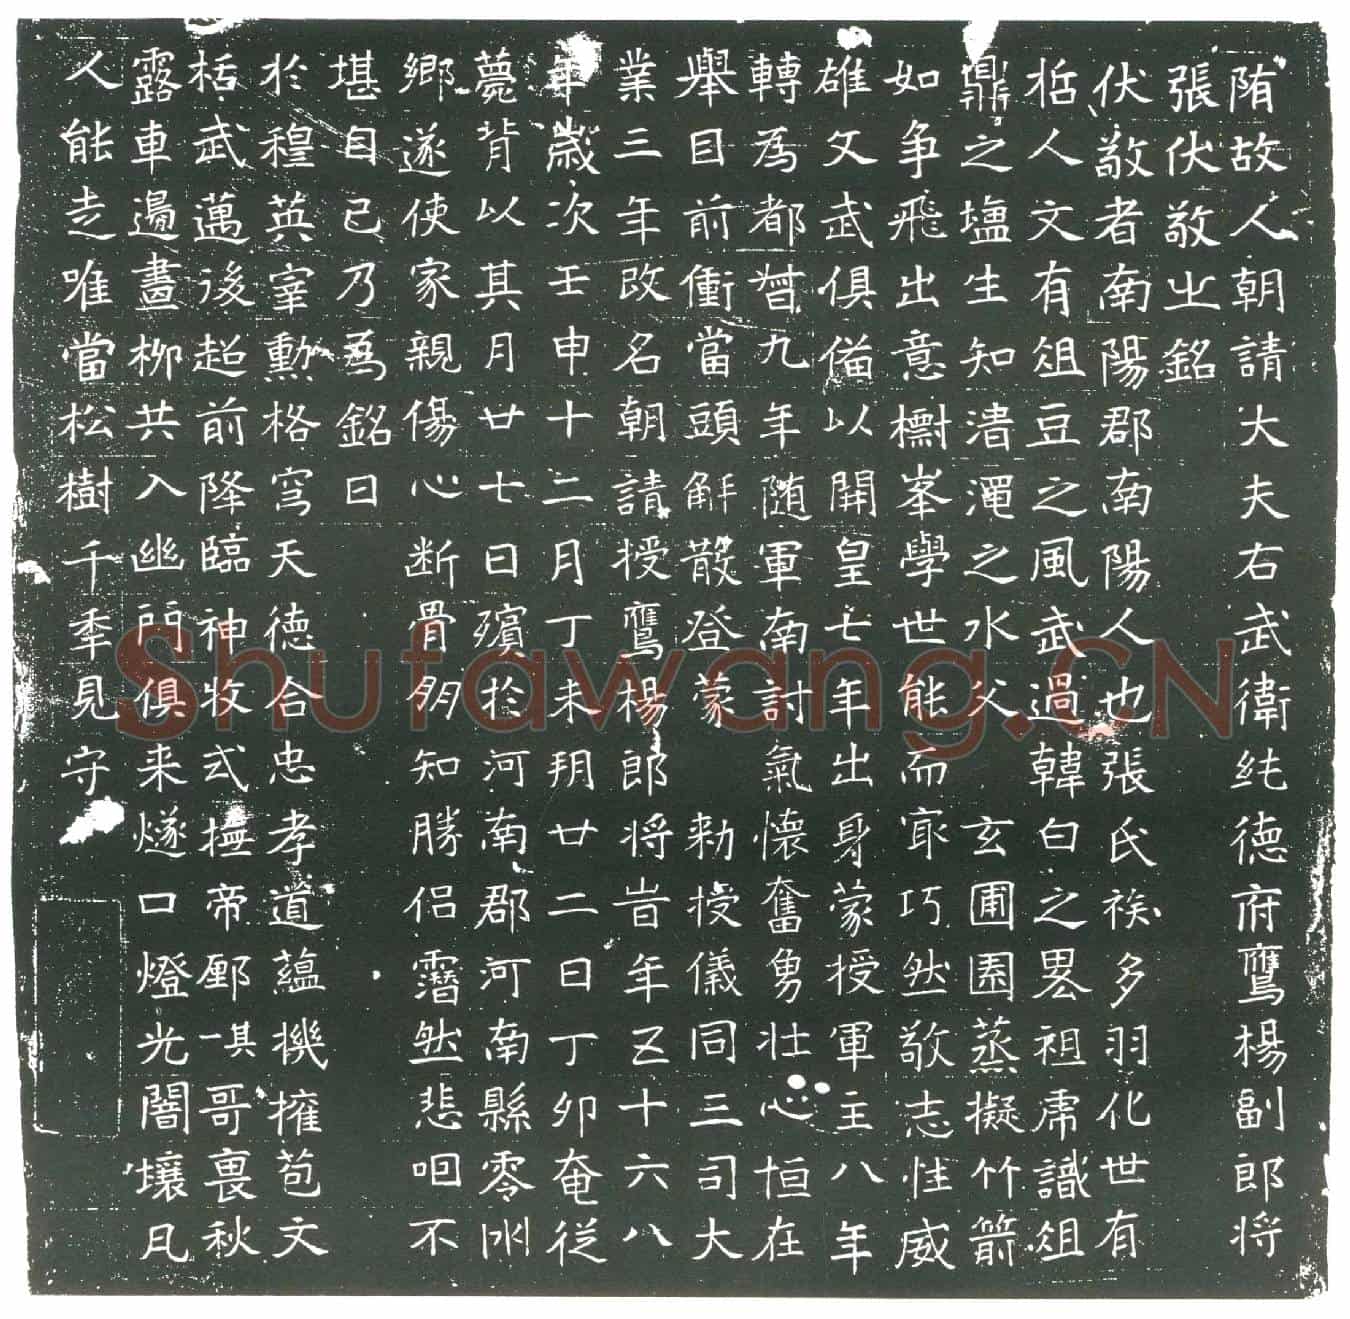 隋故人朝請大夫右武衛純德府鷹楊副郎将
張伏敬之銘
伏敬者南陽郡南陽人也張氏族多羽化世有
哲人文有俎豆之風武過韓白之畧祖席識俎
鼎之塩生知渚澠之水父玄圃園蒸擬竹箭
如争飛出意櫉峯學世能而寂巧然敬志性威
雄文武俱俻以開皇七年出身蒙授軍主八年
轉為都督九年随軍南討氣懷奮勇壮心恒在
舉目前衝當頭解散登蒙 勑授儀同三司大
業三年改名朝請授鷹楊郎将昔年五十六八
年歲次壬申十二月丁未朔廿二日丁卯奄従
薨背以其月廿七日殯於河南郡河南縣零渊
鄉遂使家親傷心断骨朋知勝侣潛然悲呬不
堪自已乃為銘曰
於穆英宰勳格穹天德合忠孝道蘊機擁苞文
栝武邁後超前降臨神牧式撫帝郵一其哥喪秋
露車邊畫柳共入幽門俱来燧口燈光闇壤凡
人能走唯當松樹千季見守
Shufawang.CN